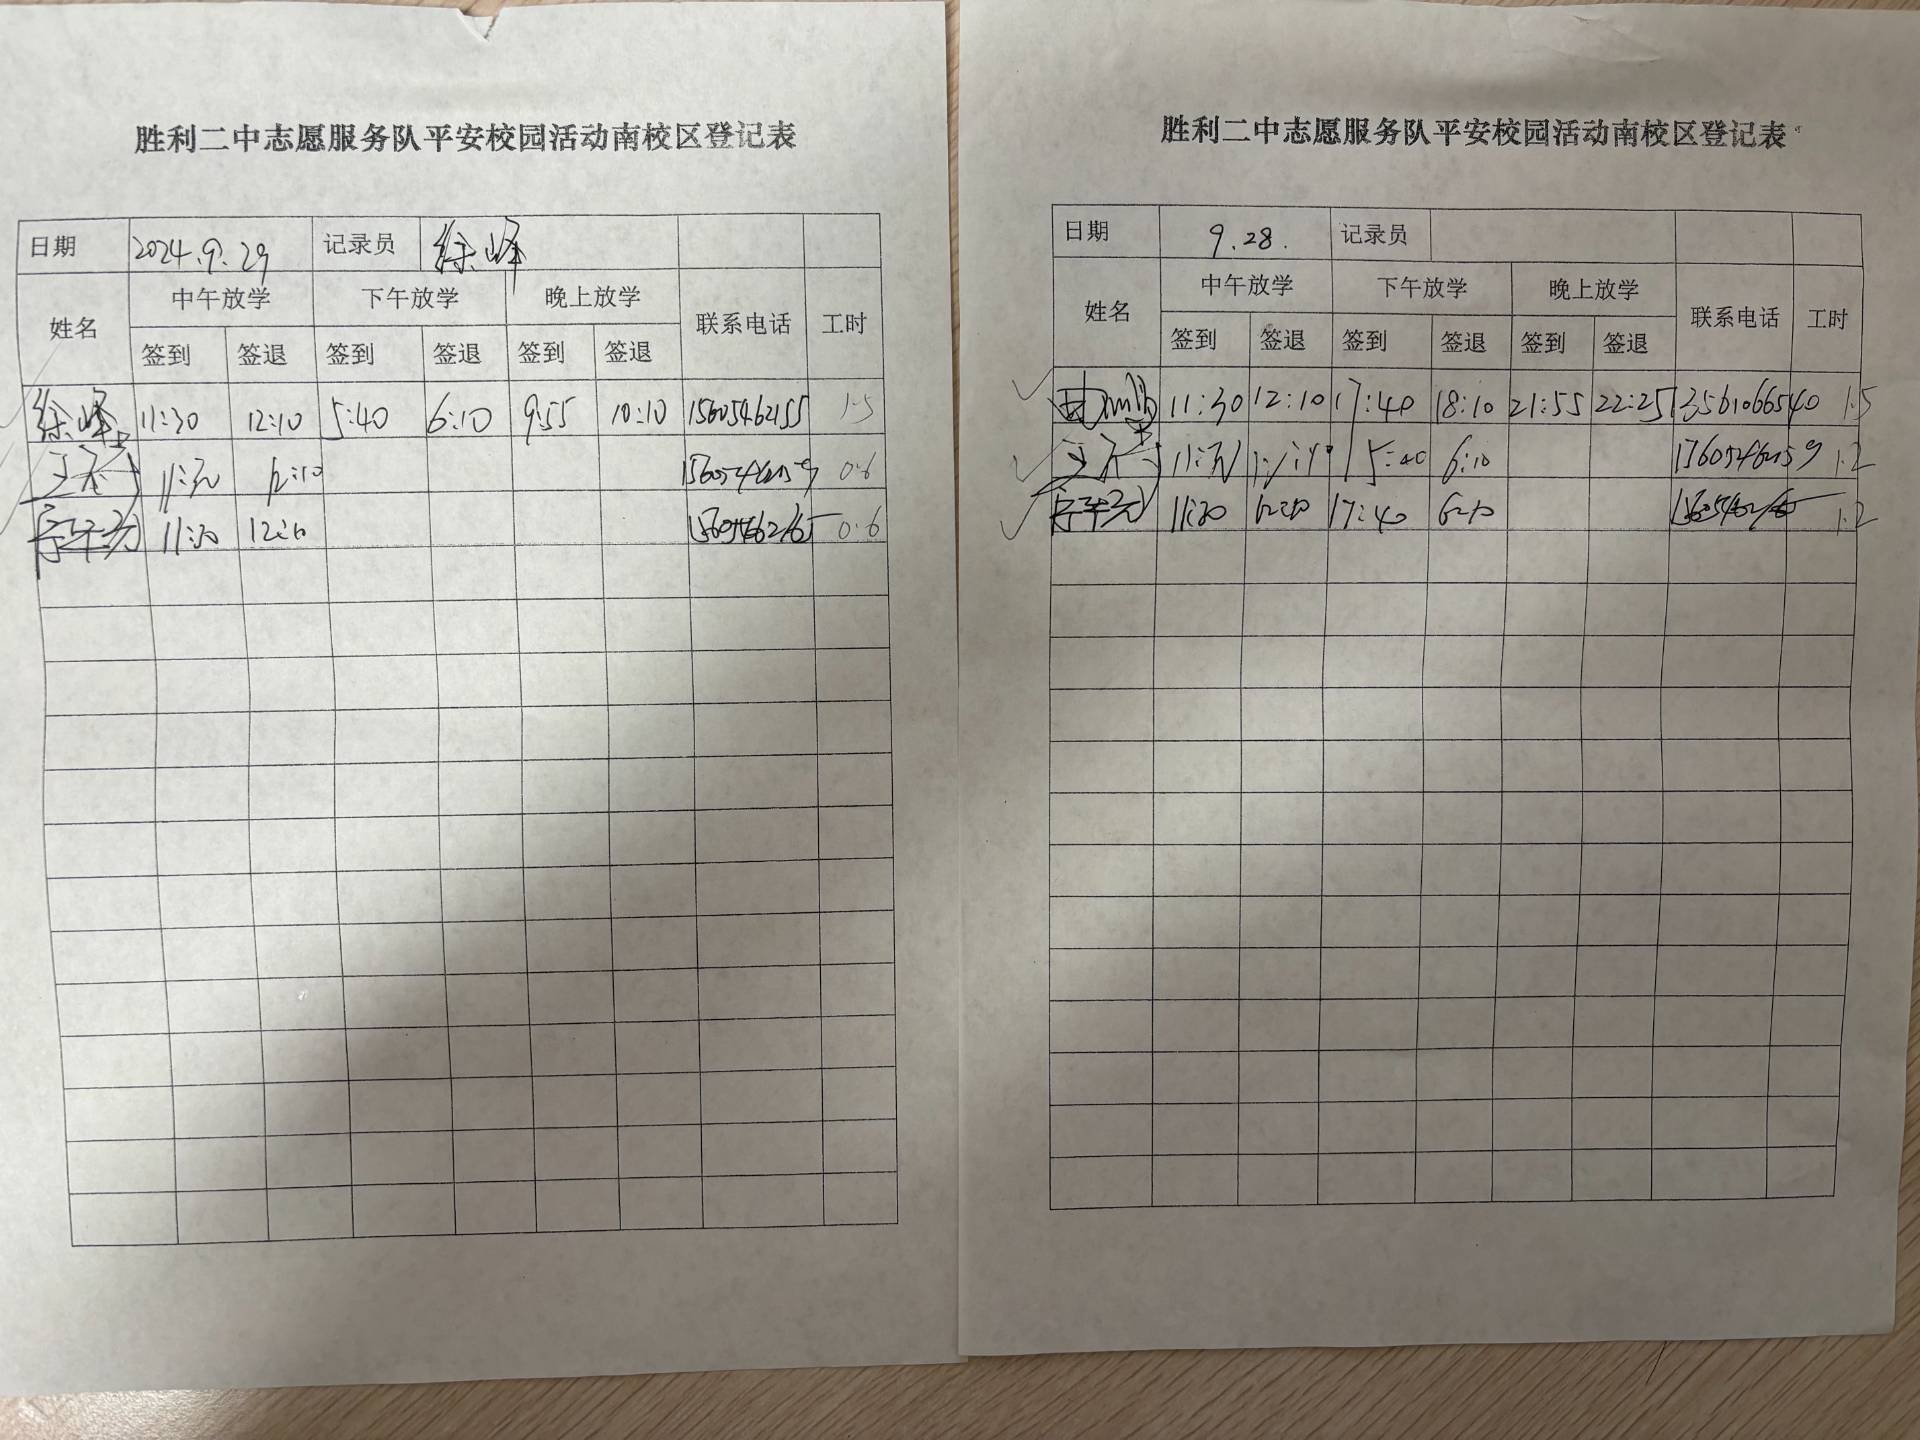 胜利二中志愿服务队平安校园活动南校区登记表
日期 2024.9.29 记录员 徐峰
姓名 中午放学 下午放学 晚上放学 联系电话 工时
签到 签退 签到 签退 签到 签退
徐峰 11:30 12:10 5:40 6:10 9:55 10:10 15605462155 1.5
11:30 12:10 0.6
11:30 12:10 0.6
胜利二中志愿服务队平安校园活动南校区登记表
日期 9.28. 记录员
姓名 中午放学 下午放学 晚上放学 联系电话 工时
签到 签退 签到 签退 签到 签退
11:30 12:10 17:40 18:10 21:55 22:25 13561066540 1.5
11:30 5:40 6:10 1.2
11:30 17:40 1.2